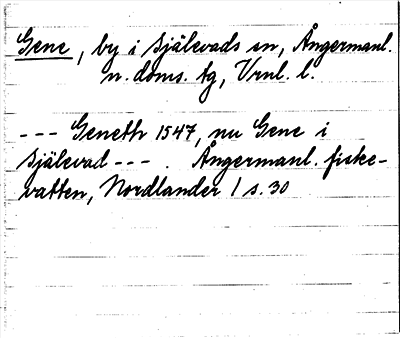 Gene, by i Själevads sn, Ångermanl.
n. doms. tg, Vrnl. l.
--- Geneth 1547, nu Gene i
Själevad --- . Ångermanl. fiske-
vatten, Nordlander / s. 30